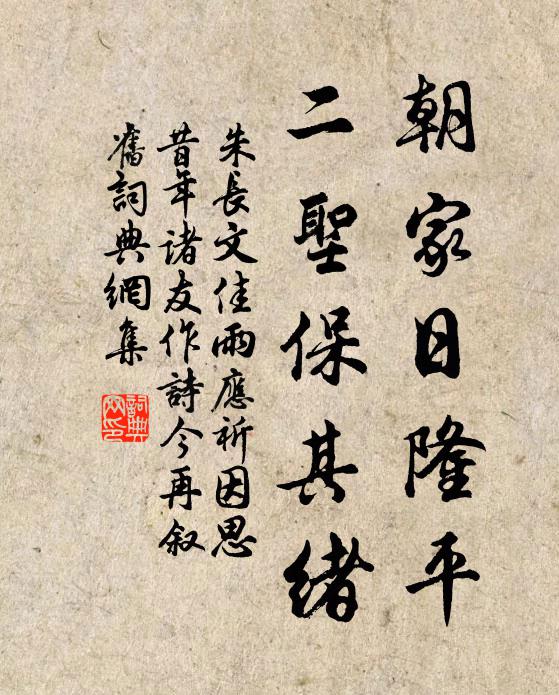 朝家日隆平
二聖保其緒
朱長文佳雨應祈因思
昔年诸友作詩今再叙
舊詞典網集
詞典
网印